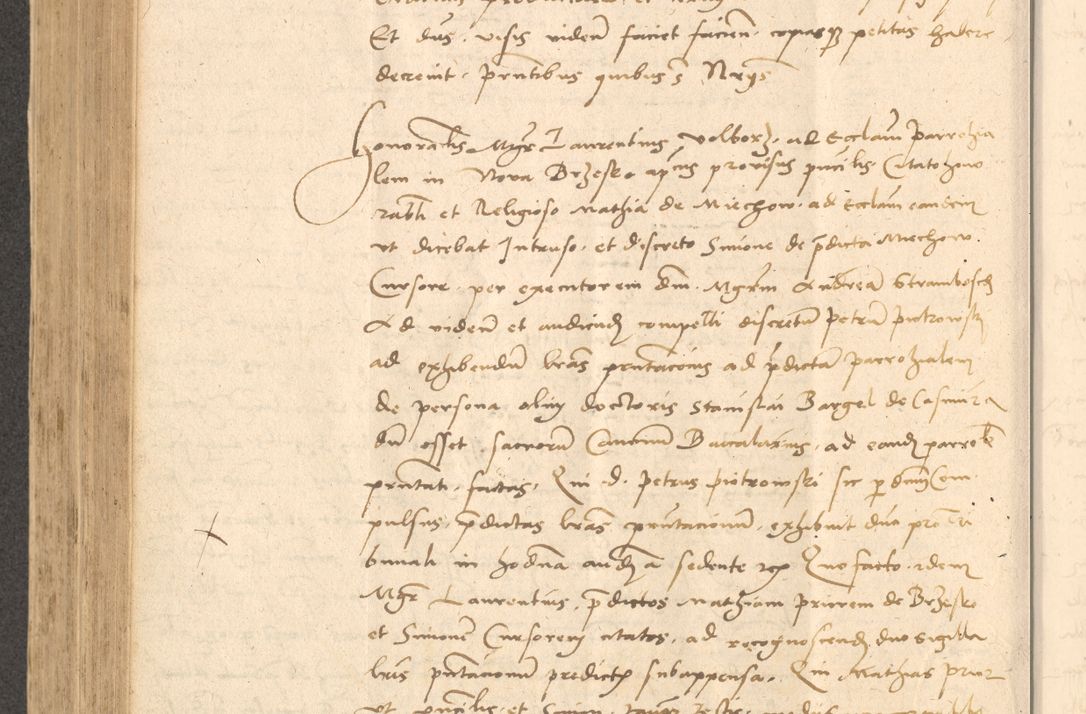 Et dns visis videri faciet facien copiasq petitas habere
decrevit pntibus quibus s Nrys
Honorabilis Mgr Laurentius Volborz ad Ecclam Parrochia
lem in Nova Brzesko aptus provisus pncilis Citato hono
rabli et Religioso Mathia de Miechow ad Ecclam eandem
ut dicebat Intruso et discreto Simone de pdicta Miechow
Cursore per executorem dni Mgrm Andream Strambosch
Ad videm et audiend compelli discretum Petrum Piotrowski
ad exhibendum lras pntacionis ad pdictam Parrochialem
de persona olim doctoris Stanislai Bargel de Casimiria
dum esset sacrorum Canonum Baccalarius ad eand parroch
pntati factas Qui d Petrus Piotrowski sic p dnm Com
pulsus pdictas lras pntacionum exhibuit duo pro tri
bunali in hodna audia sedente rcp Quo facto idem
Mgr Laurentius pdictos Mathiam Priorem de Brzesko
et Simonem Cursorem citatos ad recognoscend duo Sigilla
lris pntacionum predictis subappensa Qui Mathias Prior